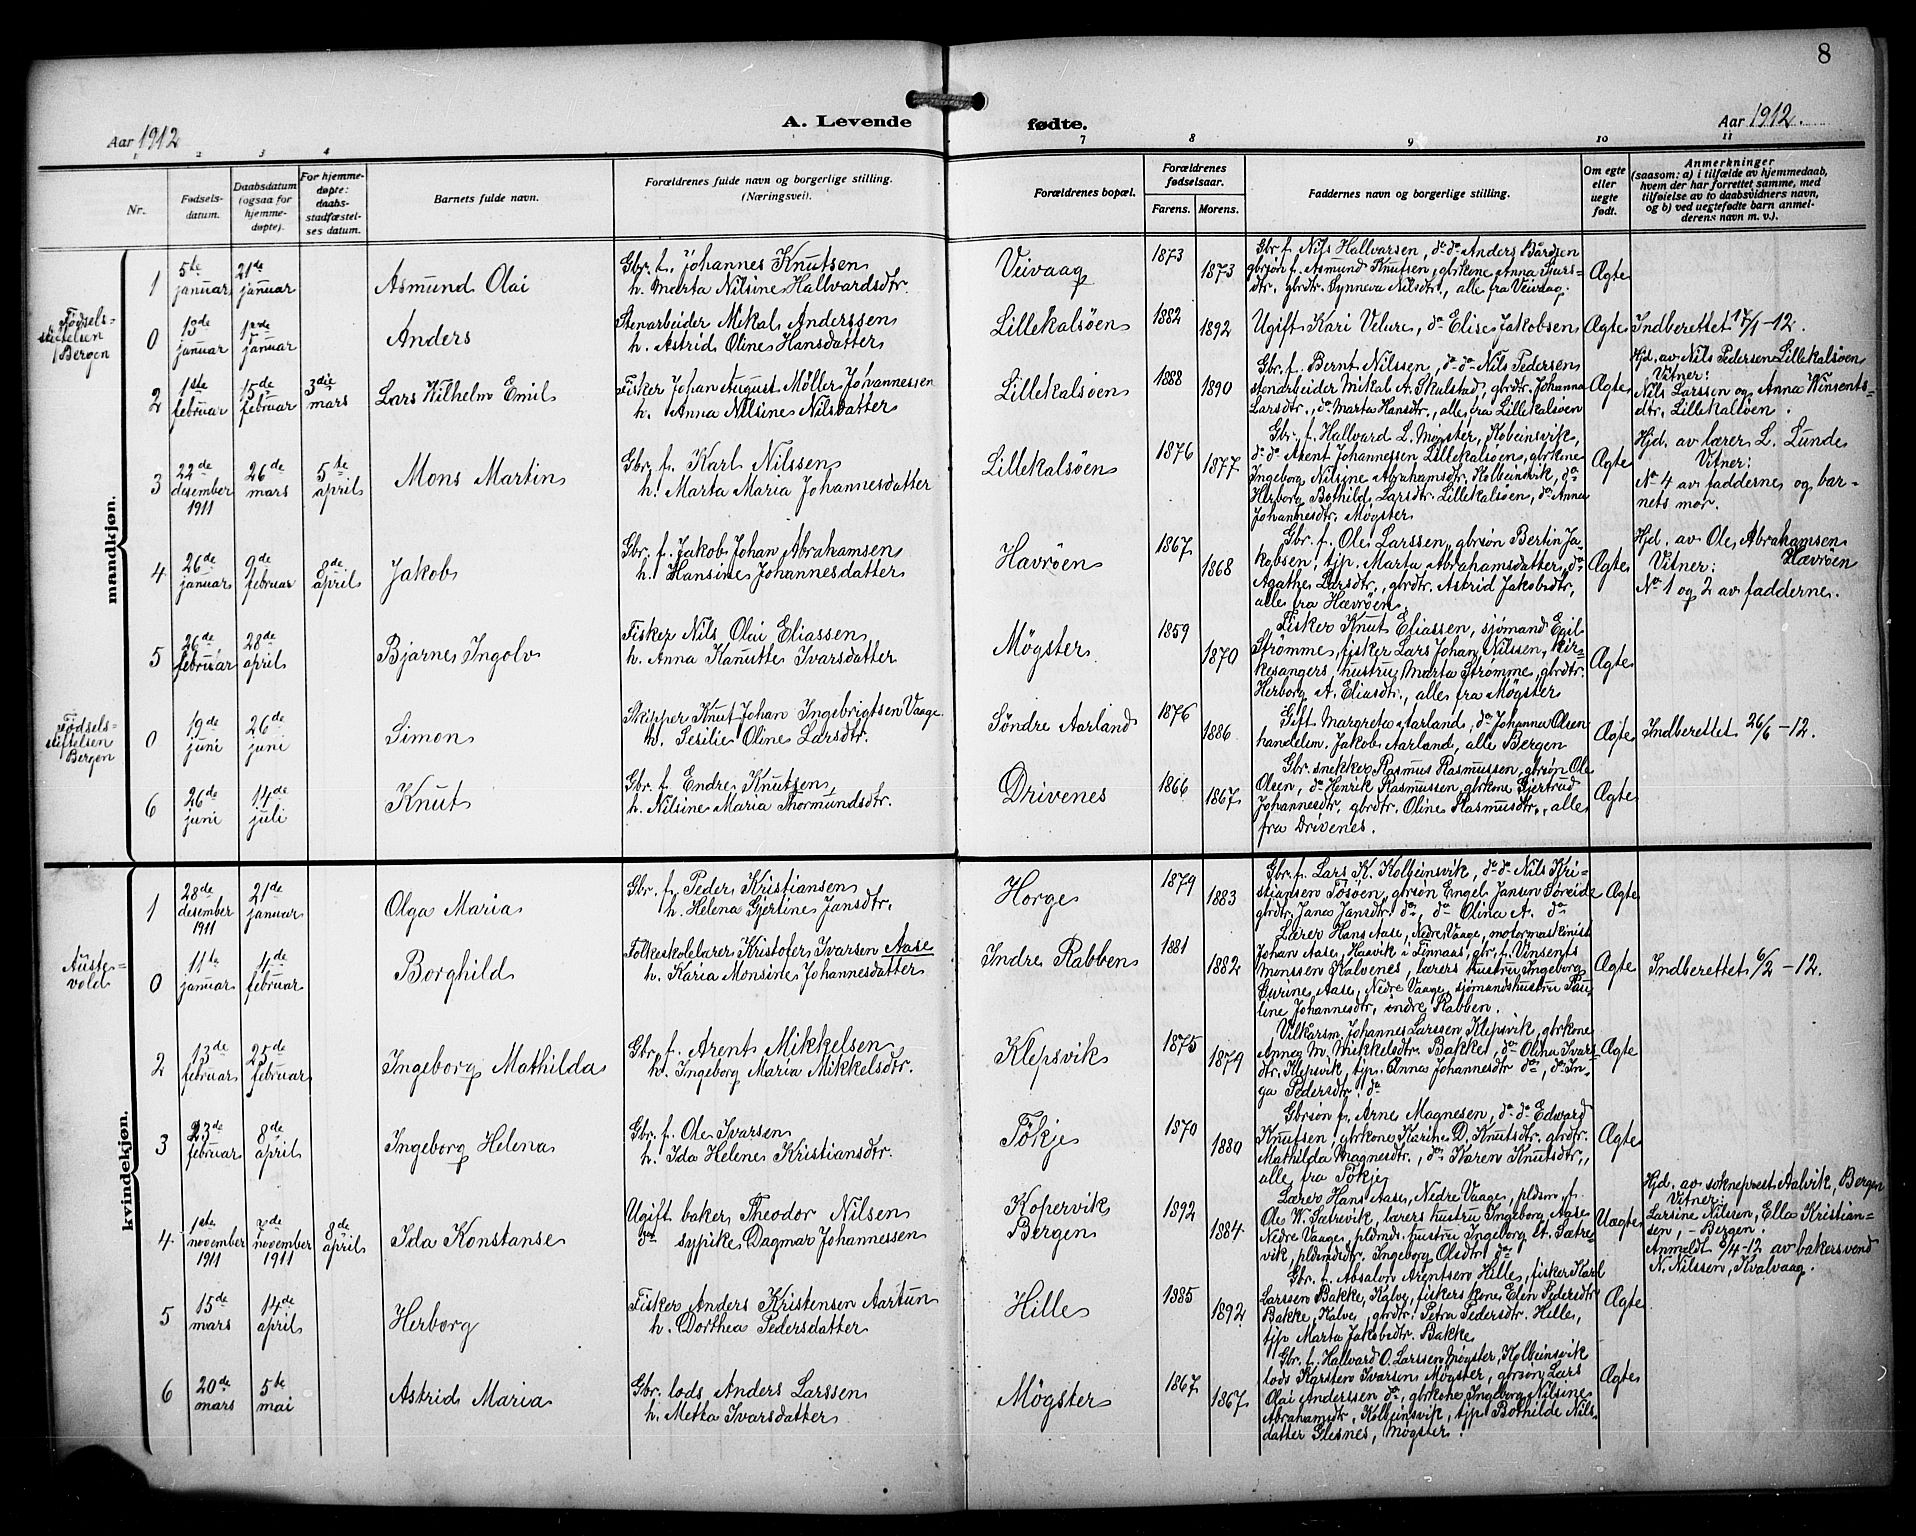 8
A. Levende fødte.
Aar 1912
Aar 1912.
1 2 3 4 7 8 9 10 11
Nr.
Fødsels-
datum.
Daabsdatum
(ogsaa for
hjemme-
døpte).
For hjemme-
døpte:
daabs-
stadfæstel-
ses datum.
Barnets fulde navn.
Forældrenes fulde navn og borgerlige stilling.
(Næringsvei).
Forældrenes bopæl.
Forældrenes
fødselsaar.
Farens. Morens.
Faddernes navn og borgerlige stilling.
Om egte
eller
uegte
født.
Anmerkninger
(saasom: a) i tilfælde av hjemmedaab,
hvem der har forrettet samme, med
tilføielse av to daabsvidners navn,
og b) ved uegtefødte barn anmel-
derens navn m. v.).
mandkjøn.
1
5te
januar
21de
januar
Asmund Olai
Gbr. f. Johannes Knutsen
h. Marta Nilsine Hallvardsdtr.
Veivaag
1873
1873
Gbr. f. Nils Hallvarsen, do do Anders Bårdsen
gbrsøn f. Asmund Knutsen, gbrkone Anna Sjurs-
dtr. gbrdtr. Synneva Nilsdtr., alle fra Veivaag.
Ægte
Fødsels-
stiftelsen
Bergen
0
13de
januar
januar
Anders
Stenarbeider Mikal Anderssen
h. Astrid Oline Hansdatter
Lillekalsøen
1882
1892
Ugift Kari Velure, da Elise Jakobsen
Ægte
Indberettet 17/1-12.
2
1ste
februar
15de
februar
3die
mars
Lars Vilhelm Emil
Fisker Johan August Møller Johannessen
h. Anna Nilsine Nilsdatter
Lillekalsøen
1888
1890
Gbr. f. Bernt Nilssen, do do Nils Pedersen
stenarbeider Mikal A. Skulstad, gbrdtr. Johanna
Larsdtr., da Marta Hansdtr., alle fra Lillekalsøen
Ægte
Hjd. av Nils Pedersen Lillekalsøen
Vitner:
Nils Larssen og Anna Vinsents-
dtr. Lillekalsøen.
3
22de
desember
1911
26de
mars
5te
april
Mons Martin
Gbr. f. Karl Nilssen
h. Marta Maria Johannesdatter
Lillekalsøen
1876
1877
Gbr. f. Hallvard L. Møgster, Kobeinsvik,
do do Arent Johannessen Lillekalsøen, gbrkone
Ingeborg Nilsine Abrahamsdtr. Kolbeinsvik, da
Herborg Bothild Larsdtr. Lillekalsøen, da Anna
Johannesdtr. Møgster
Ægte
Hjd. av lærer L. Lunde
Vitner:
No 4 av fadderne og bar-
nets mor.
4
26de
januar
9de
februar
8de
april
Jakob
Gbr. f. Jakob Johan Abrahamsen
h. Hansine Johannesdatter
Havrøen
1867
1868
Gbr. f. Ole Larssen, gbrsøn Bertin Ja-
kobsen, tjp. Marta Abrahamsdatter, da
Agathe Larsdtr., gbrdtr. Astrid Jakobsdtr,
alle fra Hævrøen
Ægte
Hjd. av Ole Abrahamsen
Vitner: Hævrøen
No 1 og 2 av fadderne.
5
26de
februar
28de
april
Bjarne Ingolv
Fisker Nils Olai Eliassen
h. Anna Kanutte Ivarsdatter
Møgster
1859
1870
Fisker Knut Eliassen, sjømand Egil
Strømme, fisker Lars Johan Nilssen, kir-
kesangers hustru Marta Strømme, gbrdtr.
Herborg A. Eliasdtr., alle fra Møgster
Ægte
Fødsels-
stiftelsen
Bergen
0
19de
juni
26de
juni
Simon
Skipper Knut Johan Ingebrigtsen Vaage
h. Sesilie Oline Larsdtr.
Søndre Aarland
1876
1886
Gift Margrete Aarland, da Johanna Olsen
handelsm. Jakob Aarland, alle Bergen
Ægte
Indberettet 26/6-12.
6
26de
juni
14de
juli
Knut
Gbr. f. Endre Knutsen
h. Nilsine Maria Thormundsdtr.
Drivenes
1866
1867
Gbr. snekker Rasmus Rasmussen, gbrsøn Ole
Olsen, do Henrik Rasmussen gbrkone Gjertrud
Johannesdtr. gbrdtr. Oline Rasmusdtr., alle
fra Drivenes.
Ægte
kvindekjøn.
1
28de
desember
1911
21de
januar
Olga Maria
Gbr. f. Peder Kristiansen
h. Helena Gjertine Jansdtr.
Horge
1879
1883
Gbr. f. Lars K. Kolbeinsvik, do do Nils Kri-
stiansen Tosøen, gbrsøn Engel Jansen Søreide
gbrdtr. Jana Jansdtr. da, da Olina A. da
Ægte
Auste-
vold
0
11te
januar
4de
februar
Borghild
Folkeskolelærer Kristofer Ivarsen Aase
h. Karia Monsine Johannesdatter
Indre Rabben
1881
1882
Lærer Hans Aase, Nedre Vaage, motormaskinist
Johan Aase, Haavik i Finnaas, gbr. f. Vinsents
Monssen Kalvenes, lærers hustru Ingeborg
Gurine Aase, Nedre Vaage, sjømandshustru Pau-
line Johannesdtr, indre Rabben.
Ægte
Indberettet 6/2-12.
2
13de
februar
25de
februar
Ingeborg Mathilda
Gbr. f. Arent Mikkelsen
h. Ingeborg Maria Mikkelsdtr.
Klepsvik
1875
1879
Vilkarsm. Johannes Larssen Klepsvik, gbrkone
Anna M. Mikkelsdtr. Bakke, da Olina Ivars-
dtr. Klepsvik, tjp. Anna Johannesdtr da, da In-
ga Pedersdtr. da
Ægte
3
23de
februar
8de
april
Ingeborg Helena
Gbr. f. Ole Ivarsen
h. Ida Helene Kristiansdtr.
Tøkje
1870
1880
Gbrsøn f. Arne Magnesen, do do Edward
Knutsen, gbrkone Karine D. Knutsdtr. gbrdtr.
Mathilda Magnesdtr., da Karen Knutsdtr.,
alle fra Tøkje
Ægte
4
1ste
november
1911
november
1911
8de
april
Ida Konstanse
Ugift baker Theodor Nilsen
do sypike Dagmar Johannessen
Kopervik
Bergen
1892
1884
Lærer Hans Aase, Nedre Vaage, pldsm. f.
Ole W. Sætrevik, lærers hustru Ingeborg Aase
Nedre Vaage, pldmds. hustru Ingeborg Sætre-
vik, pldmdsdtr. Ingeborg Olsdtr. da
Uægte
Hjd. av sokneprest Aalvik, Bergen
Vitner:
Larsine Nilsen, Ella Kristian-
sen, - Bergen.
Anmeldt 6/4-12 av bakersvend
N. Nilssen, Kvalvaag.
5
15de
mars
14de
april
Herborg
Fisker Anders Kristensen Aartun
h. Dorthea Pedersdatter
Hille
1885
1892
Gbr. f. Absalon Arentsen Hille, fisker Karl
Larssen Bakke, Kalve, fiskers kone Elen Pedersdtr
Bakke, Kalve, gbrdtr. Petra Pedersdtr. Hille,
tjp. Marta Jakobsdtr. Bakke
Ægte
6
20de
mars
5te
mai
Astrid Maria
Gbr. lods Anders Larssen
h. Metta Ivarsdatter
Møgster
1867
1867
Gbr. f. Hallvard O. Larssen Møgster, Kolbeinsvik
lods Karsten Ivarsen Møgster, gbrsøn Lars
Olai Anderssen do, gbrkone Ingeborg Nilsine
Abrahamsdr, Kolbeinsvik, tjp. Bothilde Nils-
datter Glesnes, Møgster.
Ægte